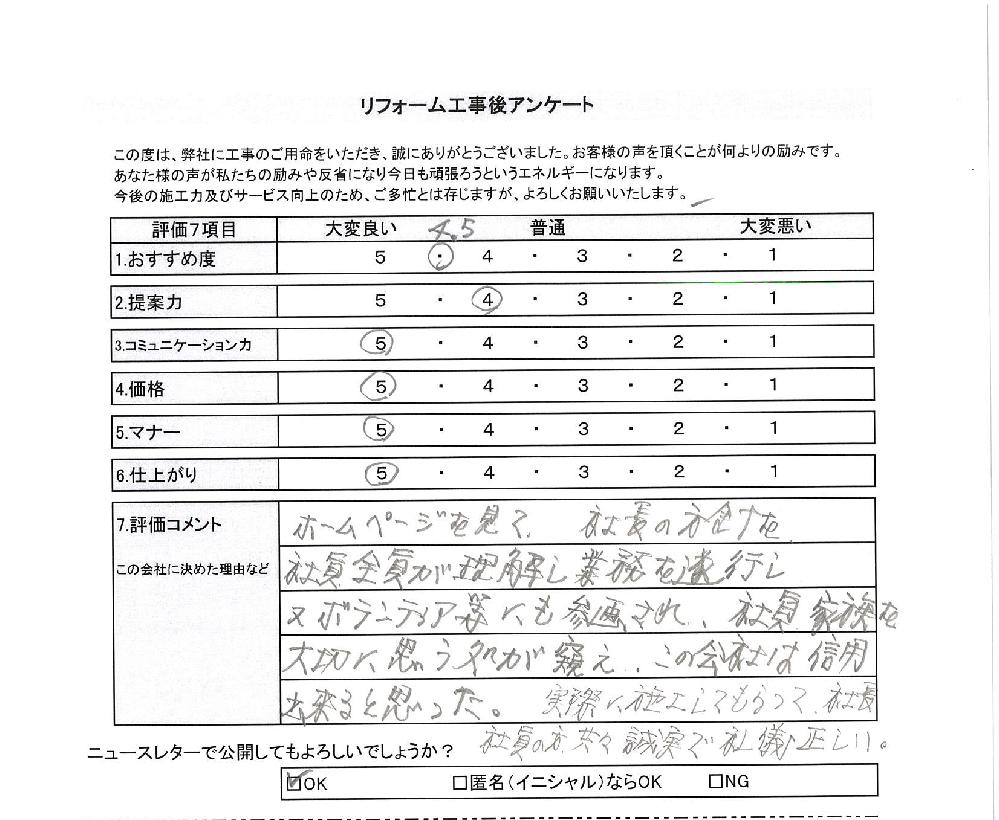 リフォーム工事後アンケート
この度は、弊社に工事のご用命をいただき、誠にありがとうございました。お客様の声を頂くことが何よりの励みです。
あなた様の声が私たちの励みや反省になり今日も頑張ろうというエネルギーになります。
今後の施工力及びサービス向上のため、ご多忙とは存じますが、よろしくお願いいたします。
評価7項目 大変良い 4.5 普通 大変悪い
1.おすすめ度 5 ・ 4 ・ 3 ・ 2 ・ 1
2.提案力 5 ・ 4 ・ 3 ・ 2 ・ 1
3.コミュニケーション力 5 ・ 4 ・ 3 ・ 2 ・ 1
4.価格 5 ・ 4 ・ 3 ・ 2 ・ 1
5.マナー 5 ・ 4 ・ 3 ・ 2 ・ 1
6.仕上がり 5 ・ 4 ・ 3 ・ 2 ・ 1
7.評価コメント ホームページを見て、社長の方針を
この会社に決めた理由など 社員全員が理解し業務を遂行し
又ボランティア等にも参画され、社員家族を
大切に思う処が窺え、この会社は信用
出来ると思った。実際に施工してもらって、社長
社員の方共々誠実で礼儀正しい。
ニュースレターで公開してもよろしいでしょうか？
☑OK □匿名（イニシャル）ならOK □NG